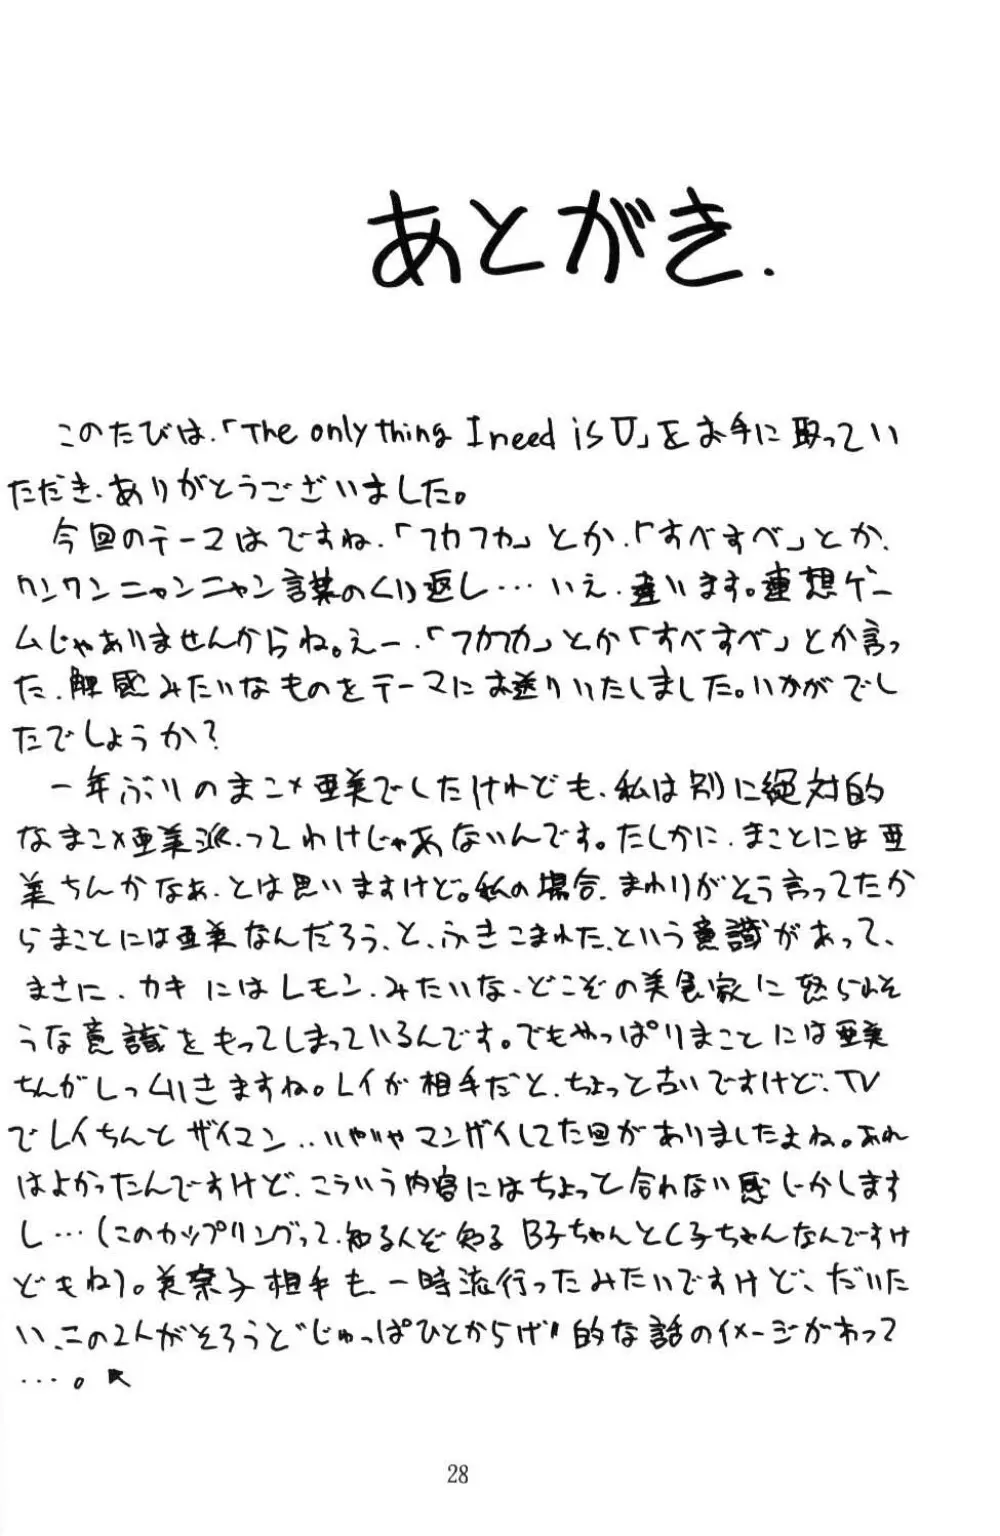 あとがき.
このたびは、「The only thing I need is U」をお手に取ってい
ただき、ありがとうございました。
今回のテーマはですね、「フカフカ」とか、「すべすべ」とか、
ワンワンニャンニャン言葉のくり返し…いえ、違います。連想ゲー
ムじゃありませんからね。えー、「フカフカ」とか「すべすべ」とか言っ
た、触感みたいなものをテーマにお送りいたしました。いかがでし
たでしょうか?
一年ぶりのまこ×亜美でしたけれども、私は別に絶対的
なまこ×亜美派、ってわけじゃあないんです。たしかに、まことには亜
美ちんかなぁ、とは思いますけど。私の場合、まわりがそう言ってたか
らまことには亜美なんだろう、と、ふきこまれた、という意識があって、
まさに、カキにはレモン、みたいな、どこぞの美食家に怒られそ
うな意識をもってしまっているんです。でもやっぱりまことには亜美
ちんがしっくりきますね。レイが相手だと、ちょっと古いですけど、TV
でレイちんとザイマン..いやいやマンザイしてた回がありましたよね。あれ
はよかったんですけど、こういう内容にはちょっと合わない感じがします
し…(このカップリングって、知る人ぞ知るB子ちゃんとC子ちゃんなんですけ
どもね)。美奈子相手も、一時流行ったみたいですけど、だいた
い、この2人がそろうと"じゅっぱひとからげ"的な話のイメージがわって
…。
28